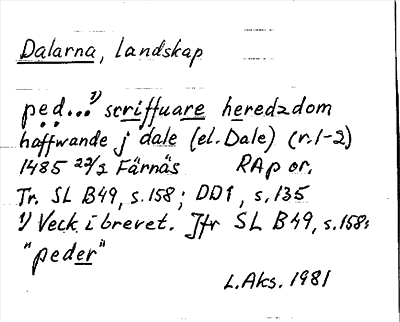 Dalarna, landskap
ped...¹⁾ scriffuare heredzdom
haffwande j dale (el. Dale) (r. 1-2)
1485 22/2 Färnäs RAp or.
Tr. SL B49, s. 158; DD1, s. 135
¹⁾ Veck i brevet. Jfr SL B49, s. 158:
"peder"
L. Aks. 1981